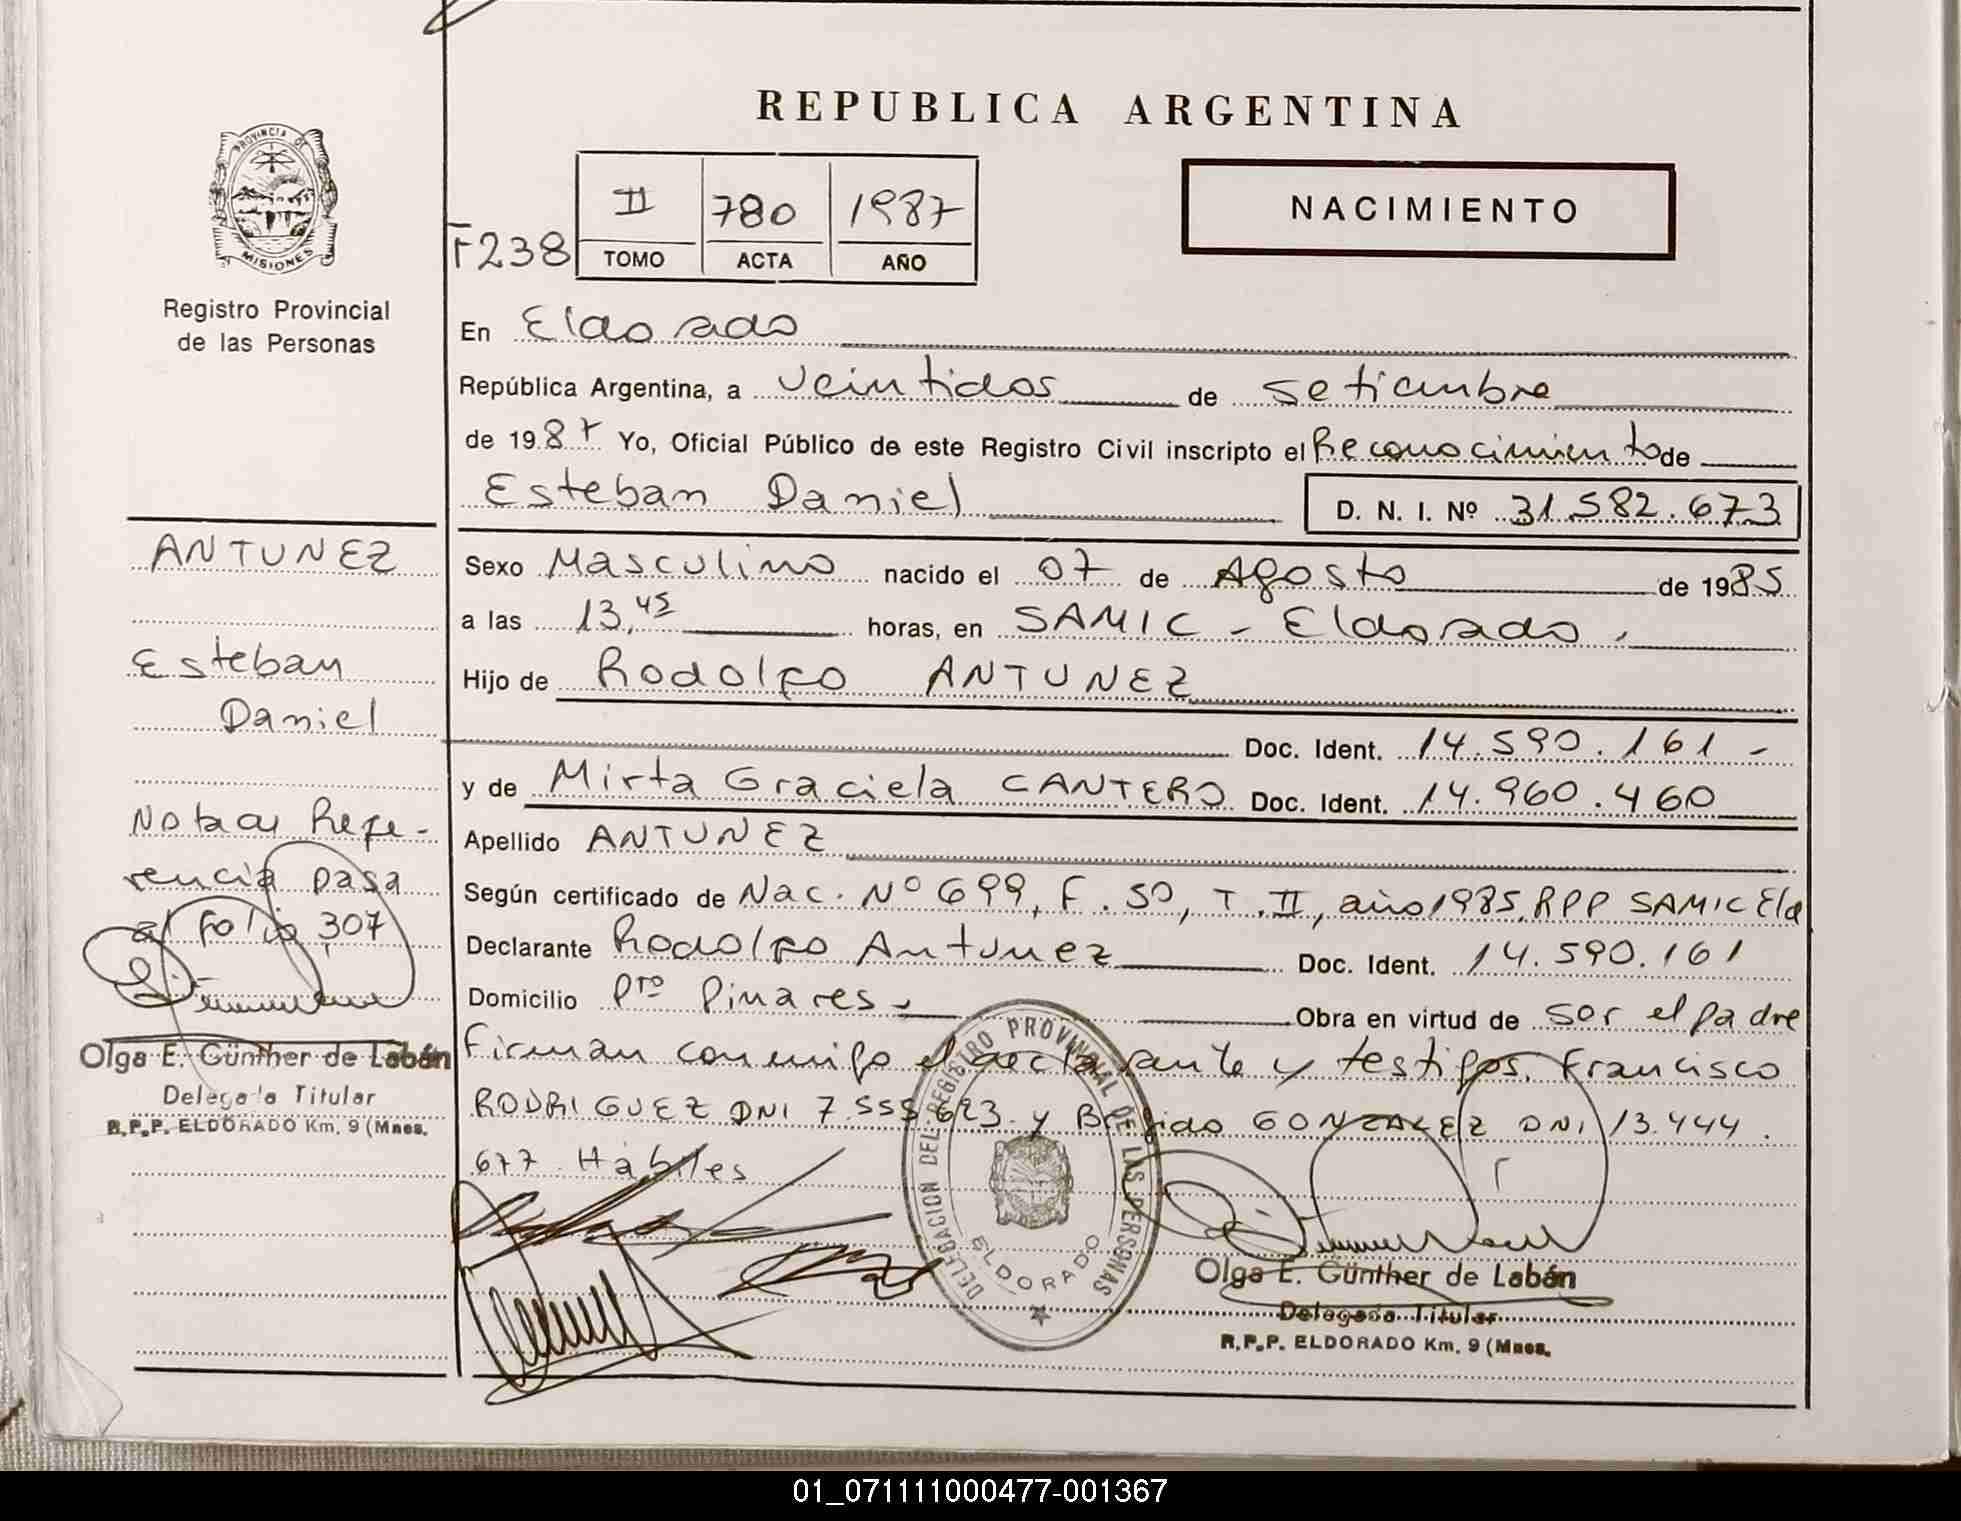 REPUBLICA ARGENTINA
PROVINCIA DE
MISIONES
Registro Provincial
de las Personas
F238
II 780 1987
TOMO ACTA AÑO
NACIMIENTO
En Eldorado
República Argentina, a veintidos de setiembre
de 1987 Yo, Oficial Público de este Registro Civil inscripto el Reconocimiento de
Esteban Daniel D. N. I. Nº 31.582.673
Sexo Masculino nacido el 07 de Agosto de 1985
a las 13,45 horas, en SAMIC - Eldorado.
Hijo de Rodolfo ANTUNEZ
Doc. Ident. 14.590.161 -
y de Mirta Graciela CANTERO Doc. Ident. 14.960.460
Apellido ANTUNEZ
Según certificado de Nac. Nº 699, F. 50, T. II, año 1985, RPP SAMIC Eld
Declarante Rodolfo Antunez Doc. Ident. 14.590.161
Domicilio Pto Pinares. Obra en virtud de ser el padre
Firman conmigo el declarante y testigos. Francisco
RODRIGUEZ DNI 7.555.623 y GONZALEZ DNI 13.444.
677. Hábiles
DELEGACION DEL REGISTRO PROVINCIAL DE LAS PERSONAS
ELDORADO
Olga E. Günther de Labán
Delegada Titular
R.P.P. ELDORADO Km. 9 (Mnes.
ANTUNEZ
Esteban
Daniel
Nota Refe-
rencia pasa
al folio 307
Olga E. Günther de Labán
Delegada Titular
R.P.P. ELDORADO Km. 9 (Mnes.
01_071111000477-001367